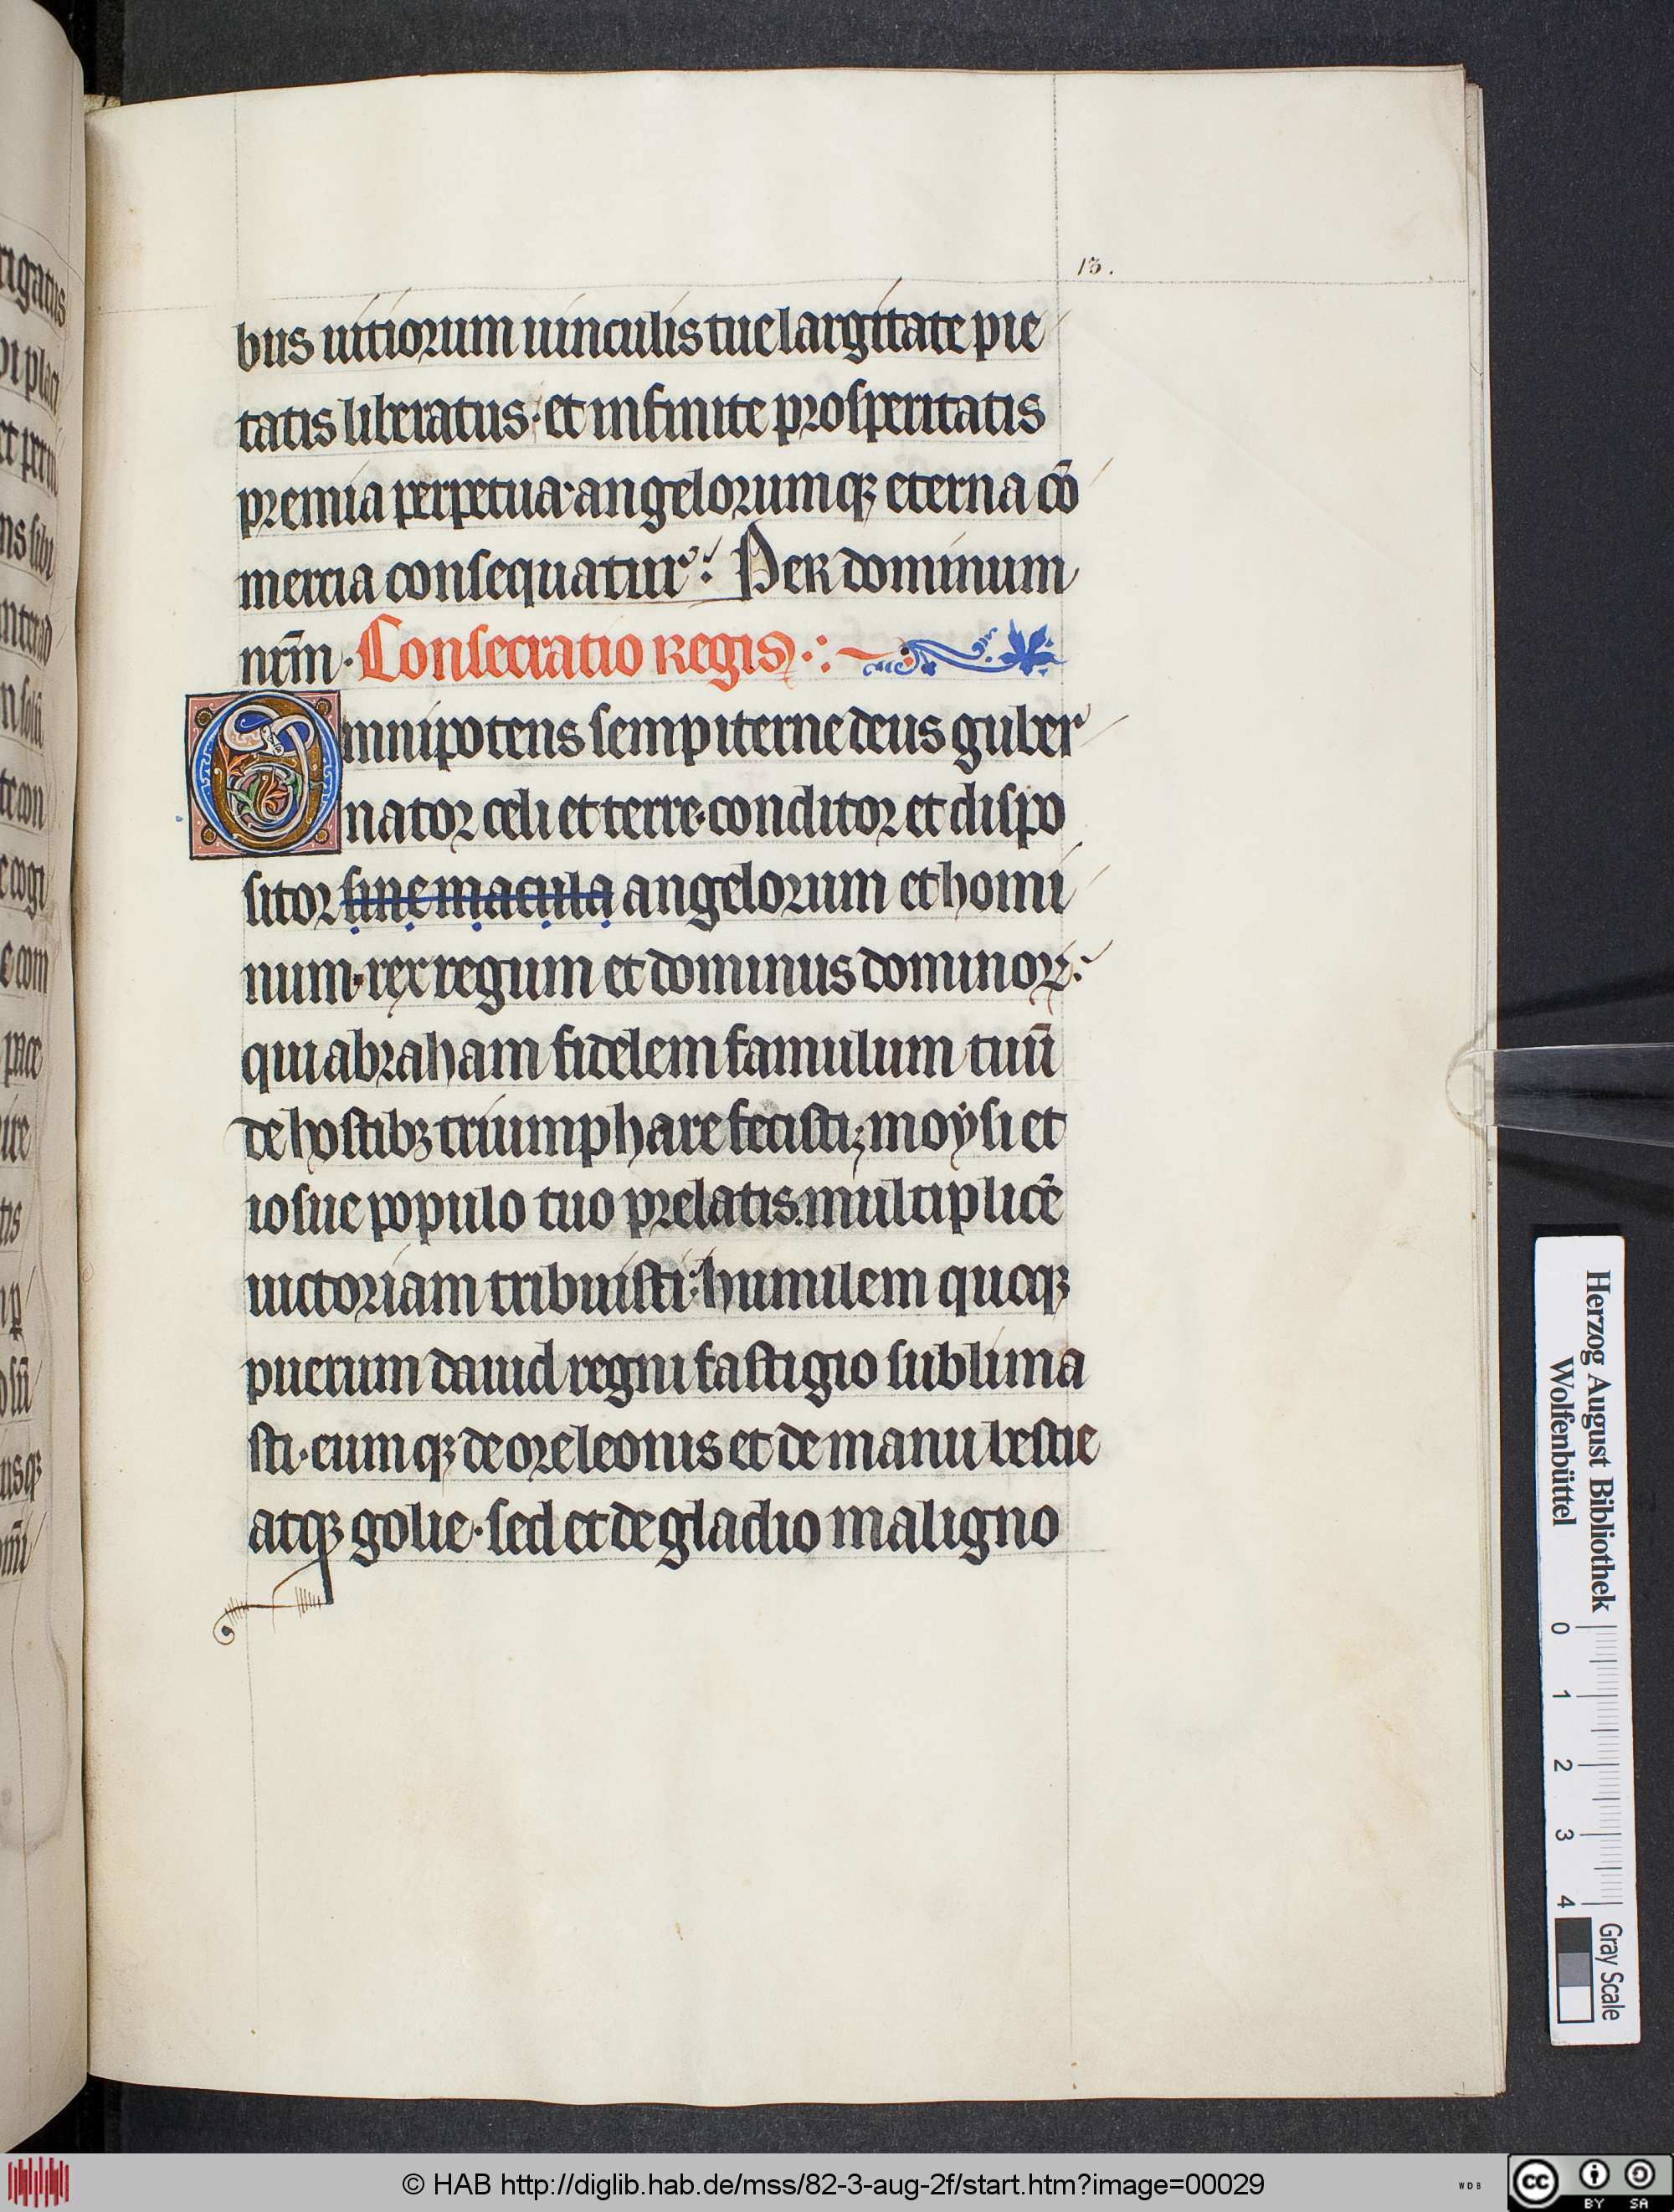 13.
bus uitiorum uinculis tue largitate pie
tatis liberatus· et infinite prosperitatis
premia perpetua· angelorumqꝫ eterna cō
mercia consequatur: Per dominum
nr̄m· Consecratio regis
Omnipotens sempiterne deus guber
nator celi et terre· conditor et dispo
sitor sine macula angelorum et homi
num· rex regum et dominus dominoꝝ:
qui abraham fidelem famulum tuū
de hostibꝫ triumphare fecisti; moẏsi et
iosue populo tuo prelatis. multiplicē
uictoriam tribuisti: humilem quoqꝫ
puerum dauid regni fastigio sublima
sti· eumqꝫ de ore leonis et de manu bestie
atqꝫ golie· sed et de gladio maligno
rigatus
Herzog August Bibliothek
Wolfenbüttel
0 1 2 3 4
Gray Scale
© HAB http://diglib.hab.de/mss/82-3-aug-2f/start.htm?image=00029
WDB
cc BY SA